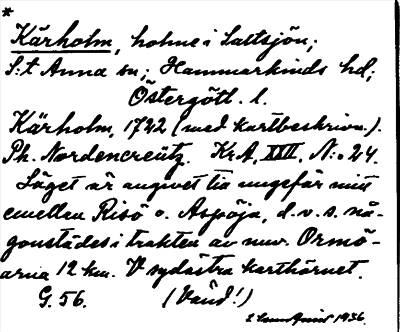 *
Kärholm, holme i Saltsjön;
S:t Anna sn; Hammarkinds hd;
Östergötl. l.
Kärholm, 1722 (med kartbeskrivn.).
Ph. Nordencreütz. KrA, XXII, N:o 24.
Läget är angivet till ungefär mitt
emellan Risö o. Aspöja, d.v.s. nå-
gonstädes i trakten av nuv. Ormö-
arna 12 km. V sydöstra karthörnet.
G. 56. (Vänd!)
1936.